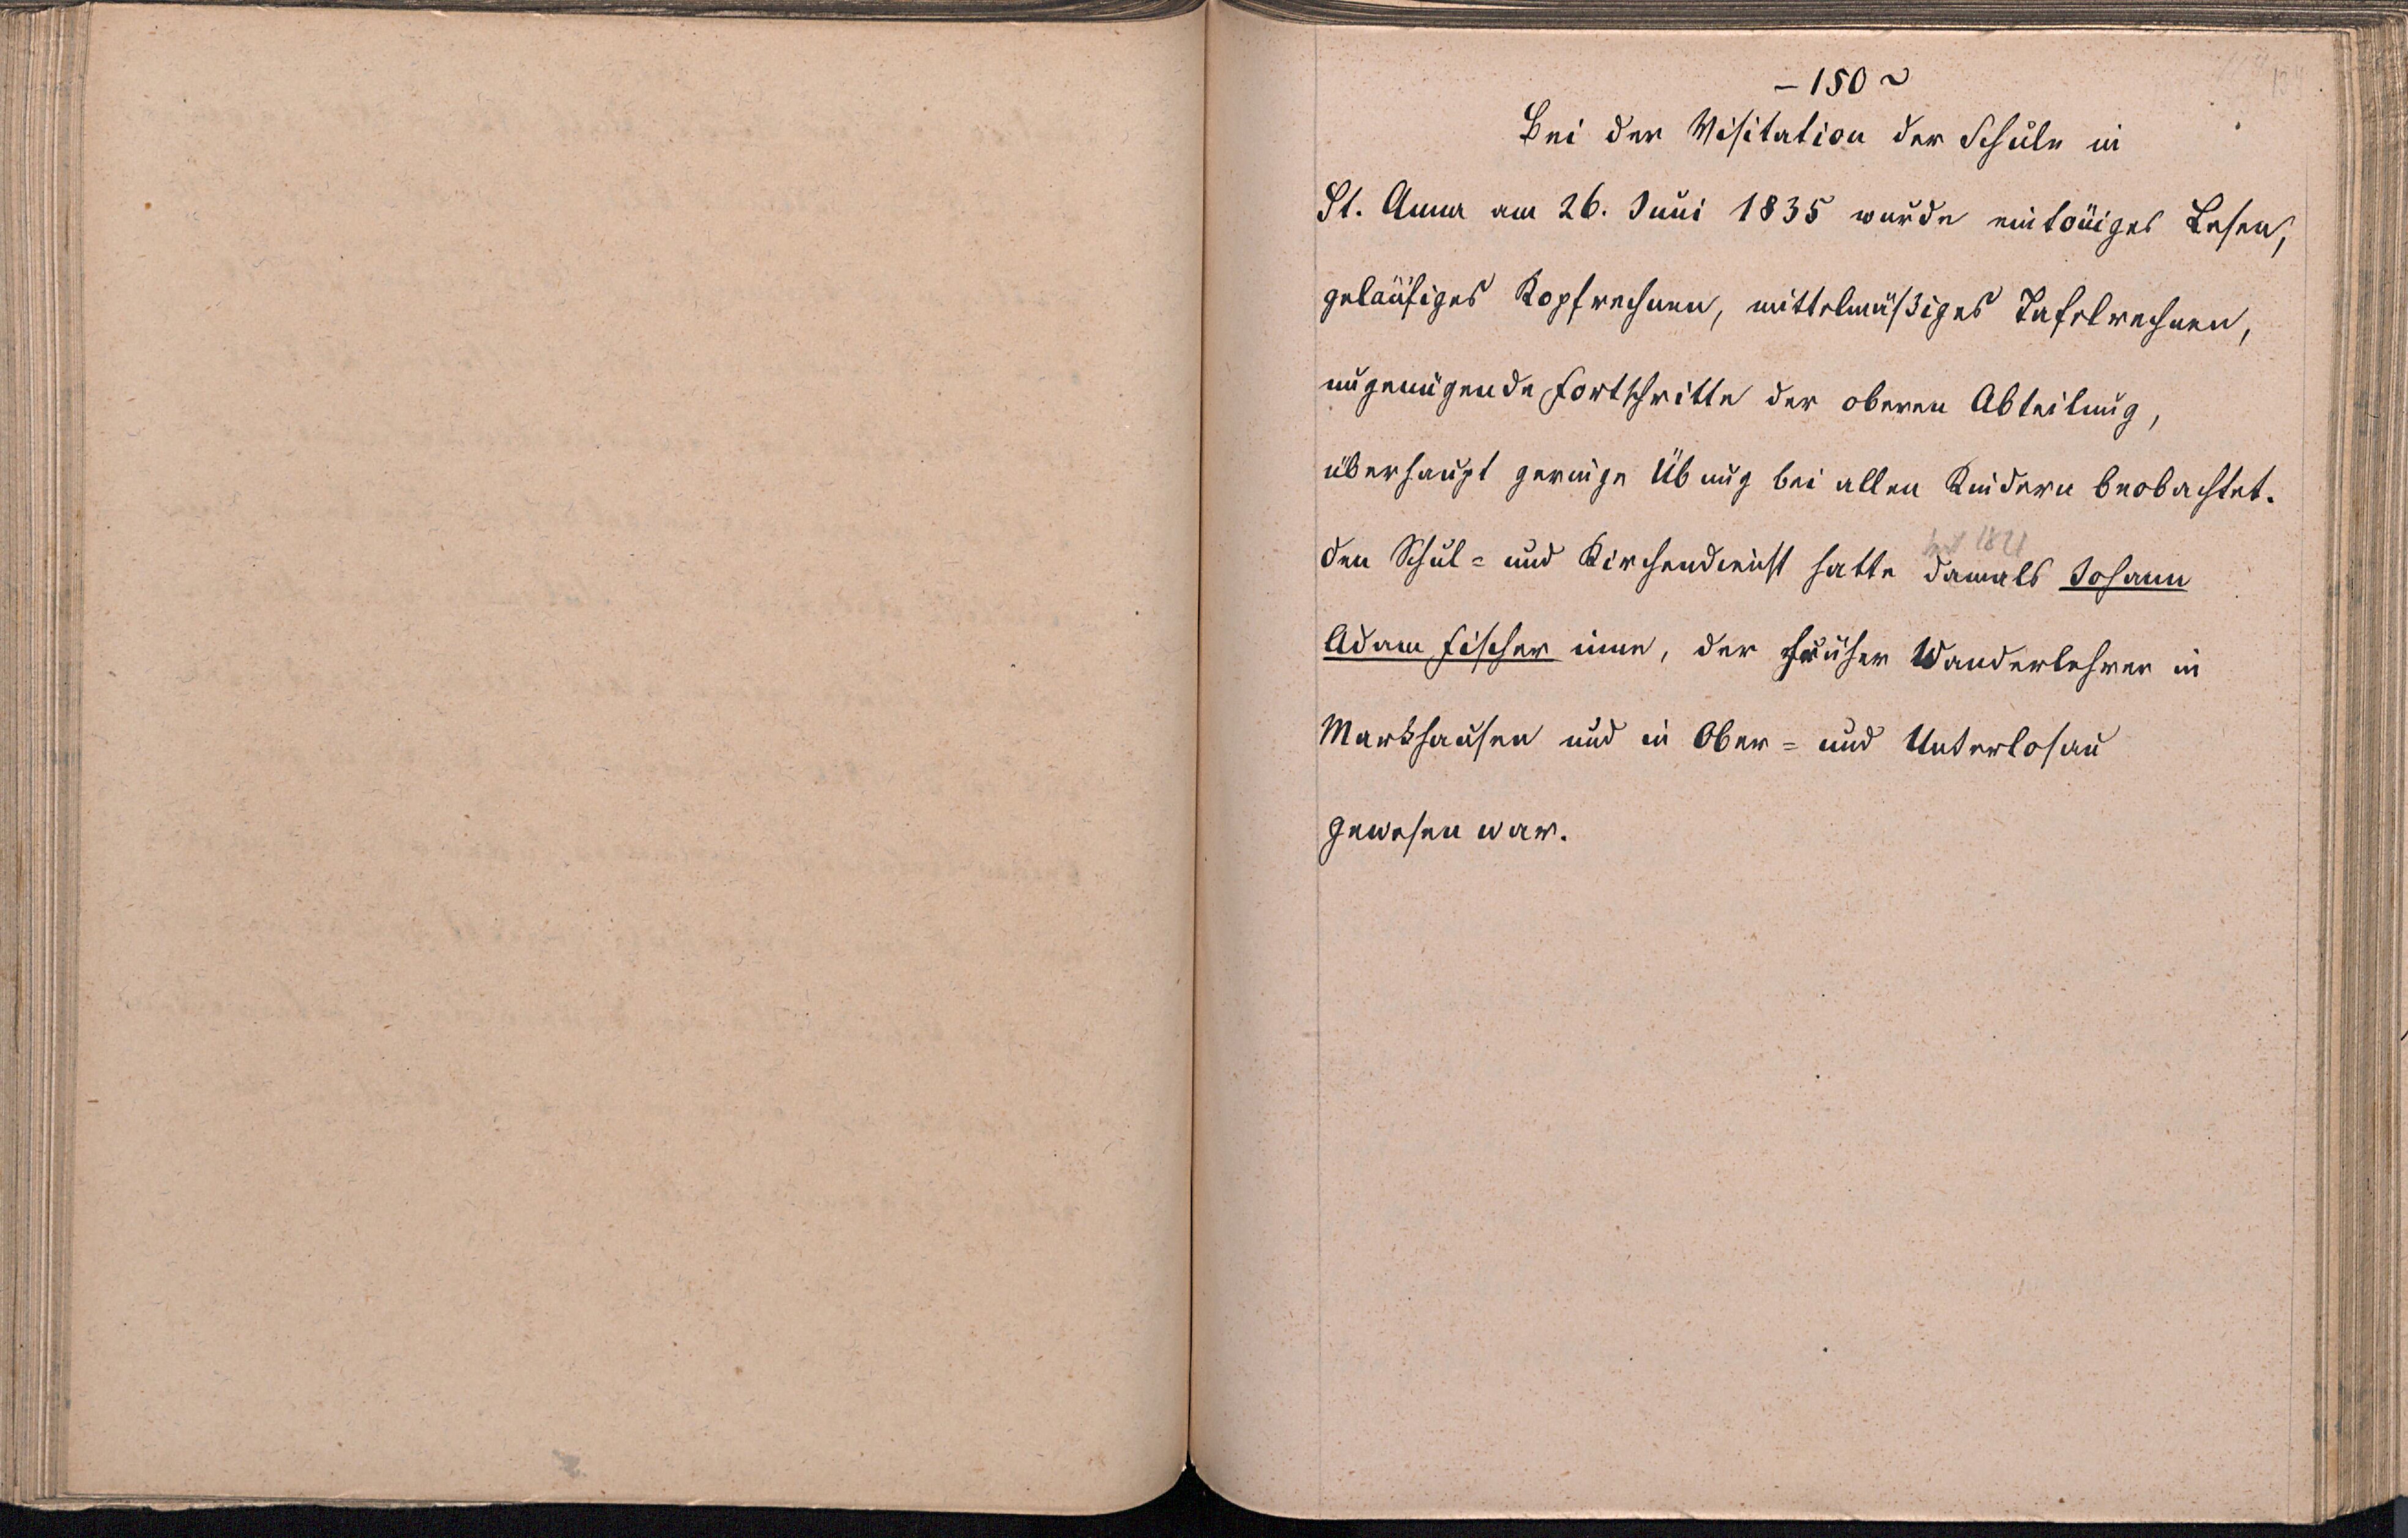 – 150 ~
Bei der Visitation der Schule in
St. Anna am 26. Juni 1835 wurde eintöniges Lesen,
geläufiges Kopfrechnen, mittelmäßiges Tafelrechnen,
ungenügende Fortschritte der oberen Abteilung,
überhaupt geringe Übung bei allen Kindern beobachtet.
seit 1821
Den Schul- und Kirchendienst hatte damals Johann
Adam Fischer inne, der früher Wanderlehrer in
Markhausen und in Ober- und Unterlosau
gewesen war.